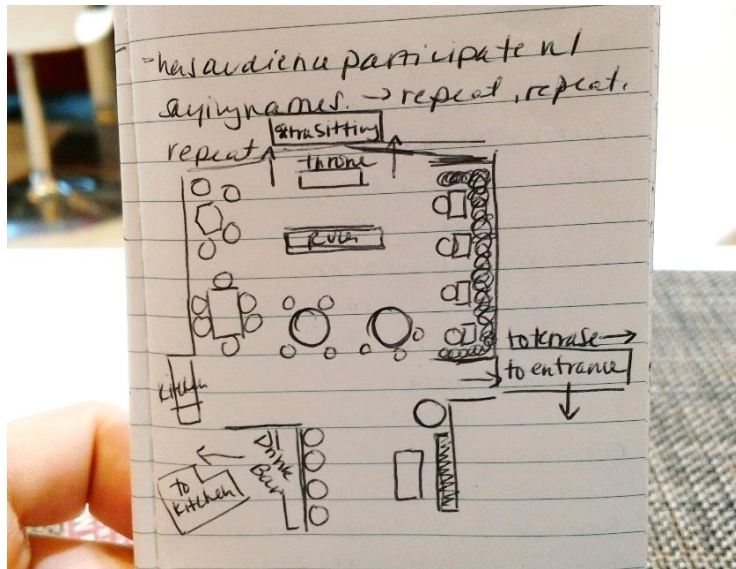 - has audience participate w/
saying names. → repeat, repeat.
repeat
extra sitting
throne
to terrase →
to entrance
kitchen
Drink
Bar
to
kitchen